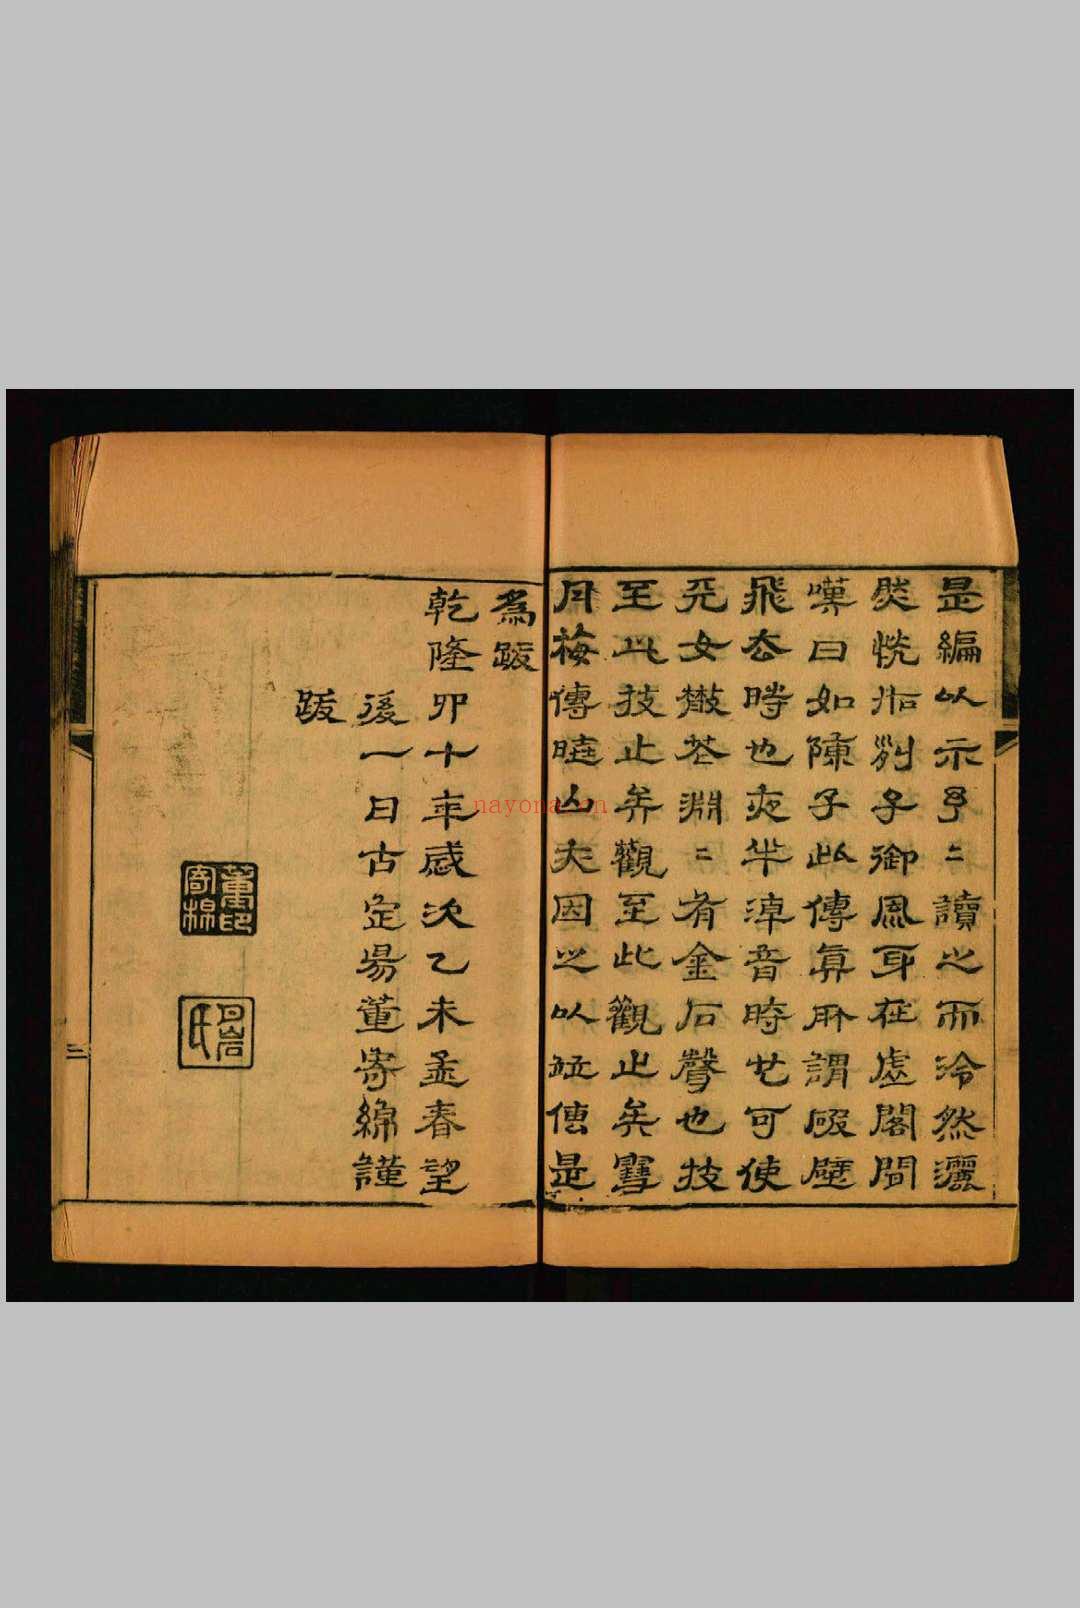 是編以示予〻讀之而泠然灑
然恍若列子御風身在虛閣間
嘆曰如陳子此傳真所謂破壁
飛去時也夜半 音時 可使
元女散花淵〻有金石聲也技
至此技止矣觀至此觀止矣雪
月梅傳曉山夫因之以竝傳是
為跋
乾隆四十年歲次乙未孟春望
後一日古定陽董寄綿謹
跋
董印寄綿
月岩氏
nayona.cn
三